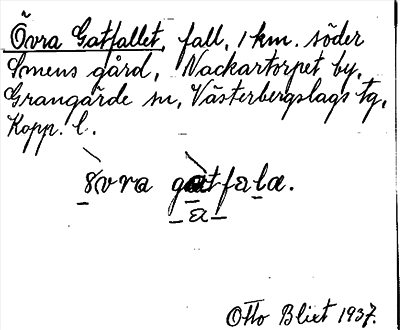 Övra Gatfallet, fall, 1 km. söder
Smens gård, Nackartorpet by,
Grangärde sn, Västerbergslags tg,
Kopp. l.
övra gatfala.
a
Otto Blixt 1937.